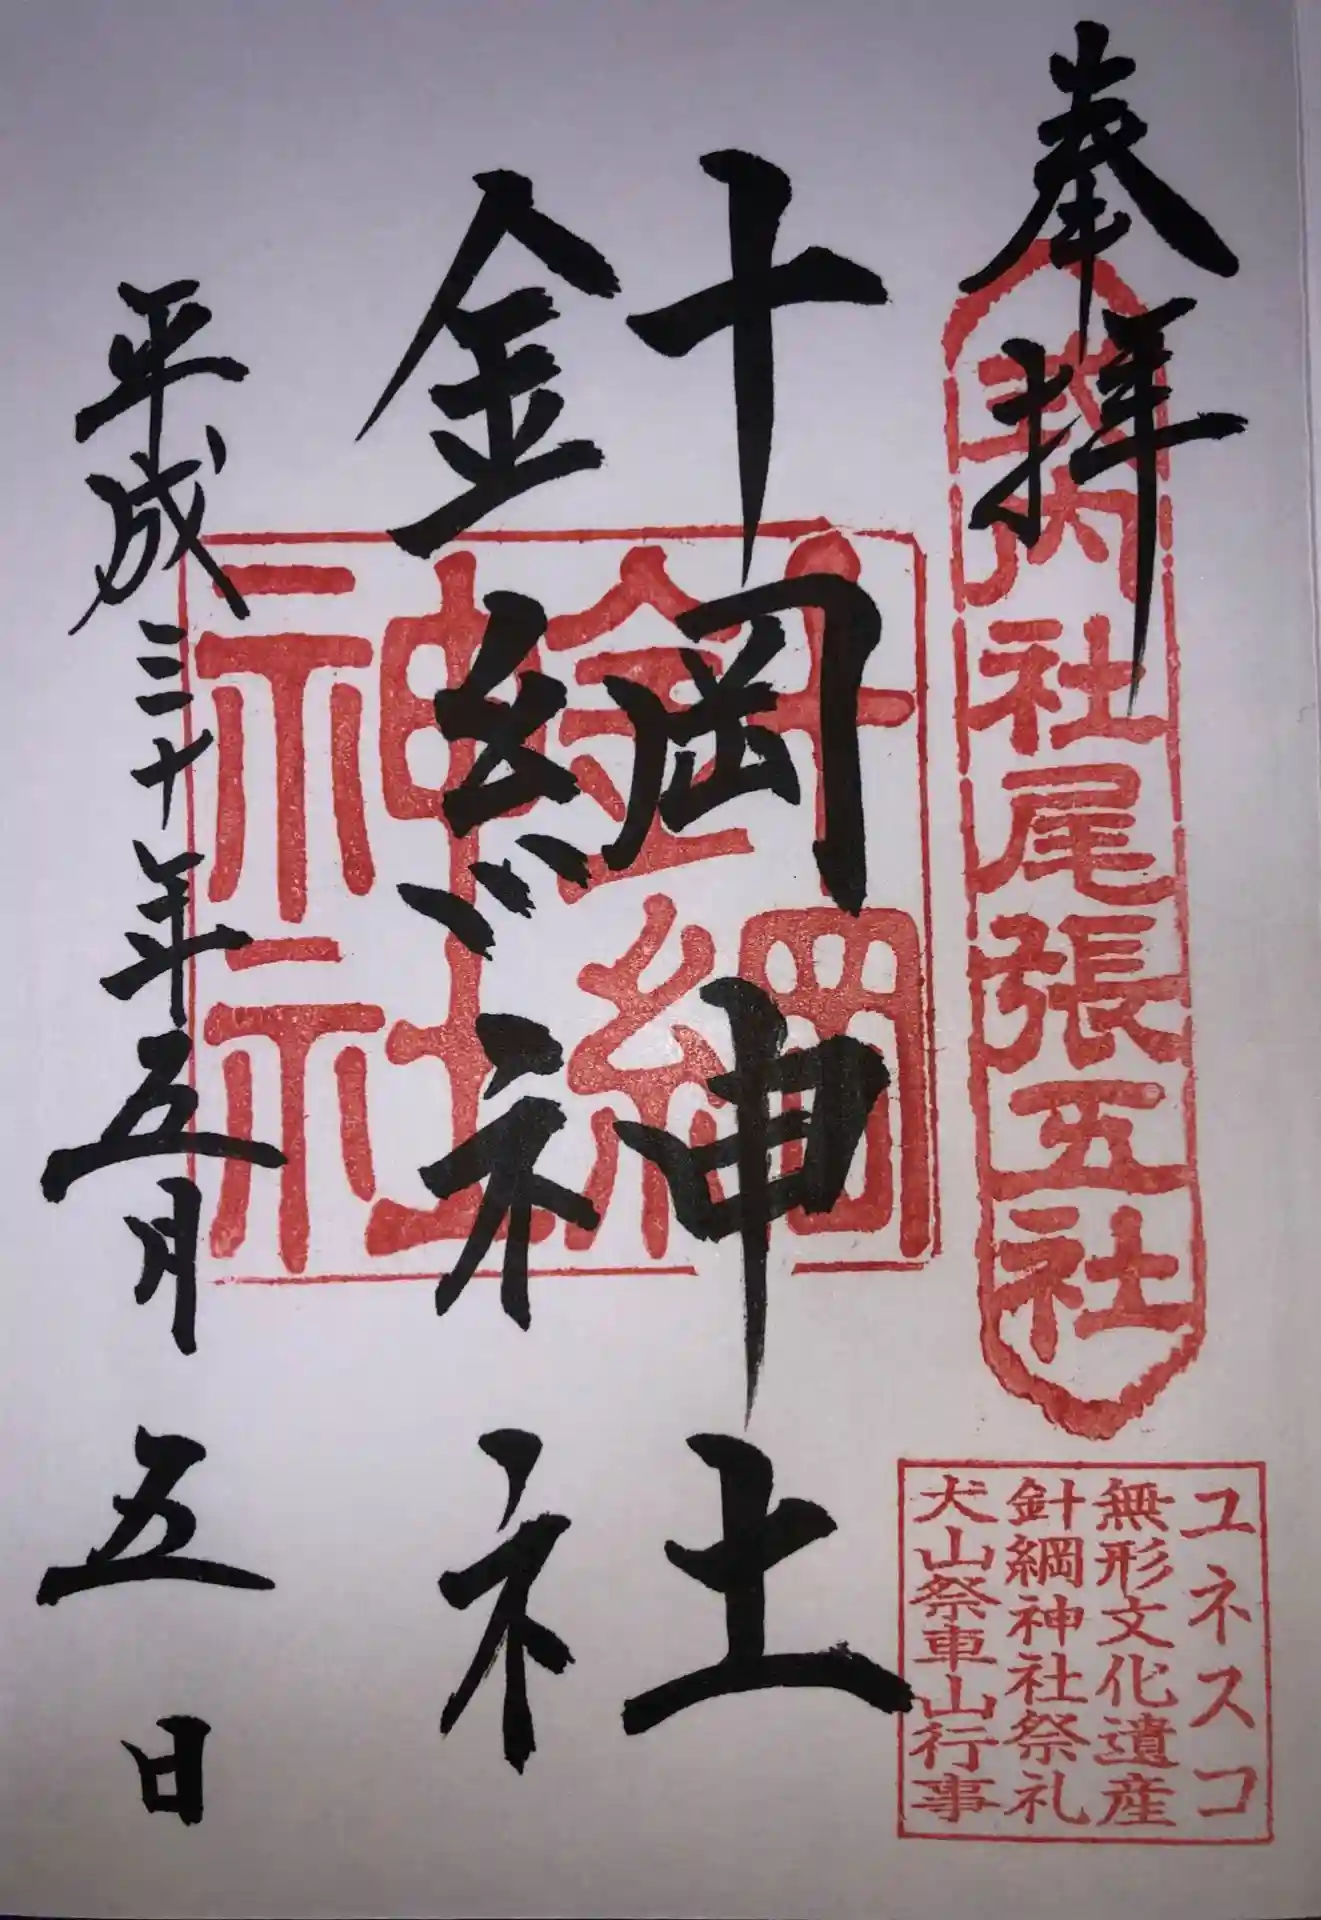 奉拝
式内社尾張五社
針綱神社
針綱神社
平成三十年五月五日
ユネスコ
無形文化遺産
針綱神社祭礼
犬山祭車山行事